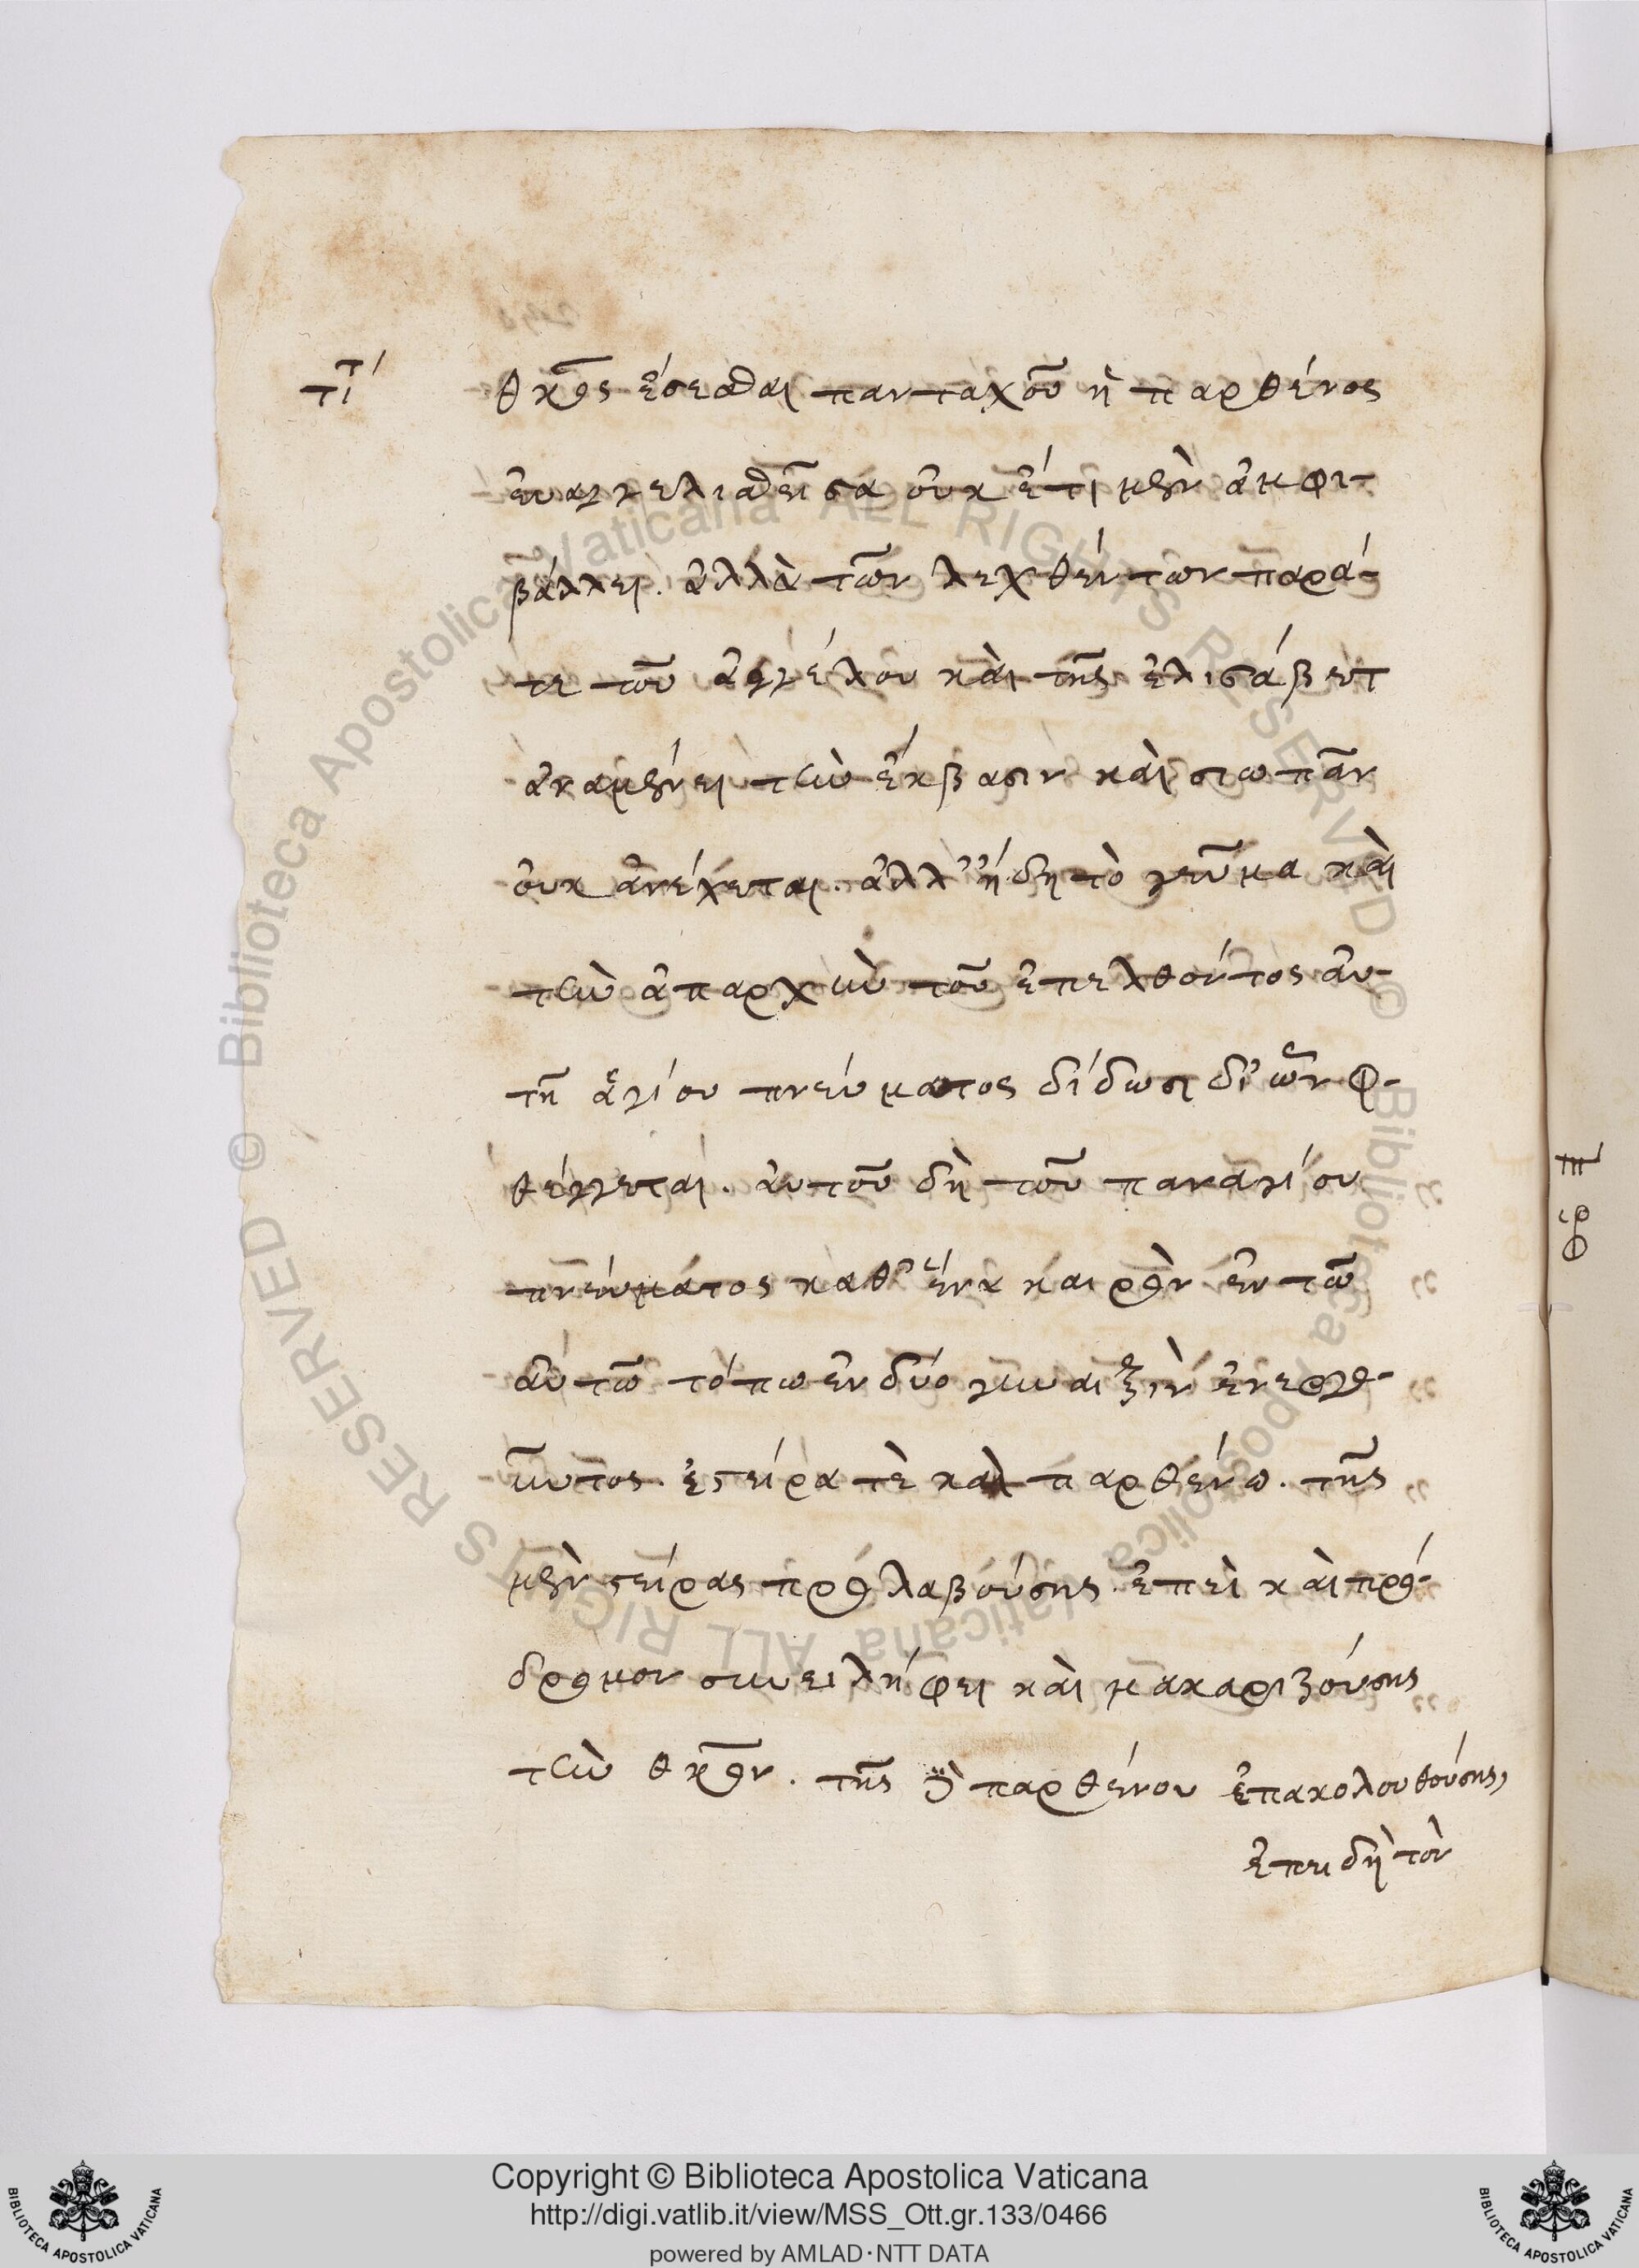 τί
θκος ἔσεσθαι πανταχοῦ ἡ παρθένος
εὐαγγελισθεῖσα οὐκ ἔτι μὲν ἀμφι-
βάλλει. ἀλλὰ τῶν λεχθέντων παρά-
τε τοῦ ἀγγέλου καὶ τῆς ἐλισάβετ
ἀναμένει τὴν ἔκβασιν καὶ σιωπᾶν
οὐκ ἀνέχεται. ἀλλ' ἤδη τὸ γεῦμα καὶ
τὴν ἀπαρχὴν τοῦ ἐπελθόντος αὐ-
τῆ ἁγίου πνεύματος δίδωσι δι' ὧν φ-
θέγγεται. αὐτοῦ δὴ τοῦ παναγίου
πνεύματος καθ' ἕνα καιρὸν ἐν τῶ
αὐτῶ τόπω ἐν δύο γυναιξὶν ἐνεργο-
ῦντος. ἐστείρα τὲ καὶ παρθένω. τῆς
μὲν στείρας προλαβούσης. ἐπεὶ καὶ πρό-
δρομον συνειλήφει καὶ μακαριζούσης
τὴν θκον. τῆς δὲ παρθένου ἐπακολουθούσης,
ἐπειδὴ τὸν
© Biblioteca Apostolica Vaticana ALL RIGHTS RESERVED
© Biblioteca Apostolica Vaticana ALL RIGHTS RESERVED
BIBLIOTECA APOSTOLICA VATICANA
Copyright © Biblioteca Apostolica Vaticana
http://digi.vatlib.it/view/MSS_Ott.gr.133/0466
powered by AMLAD·NTT DATA
BIBLIOTECA APOSTOLICA VATICANA